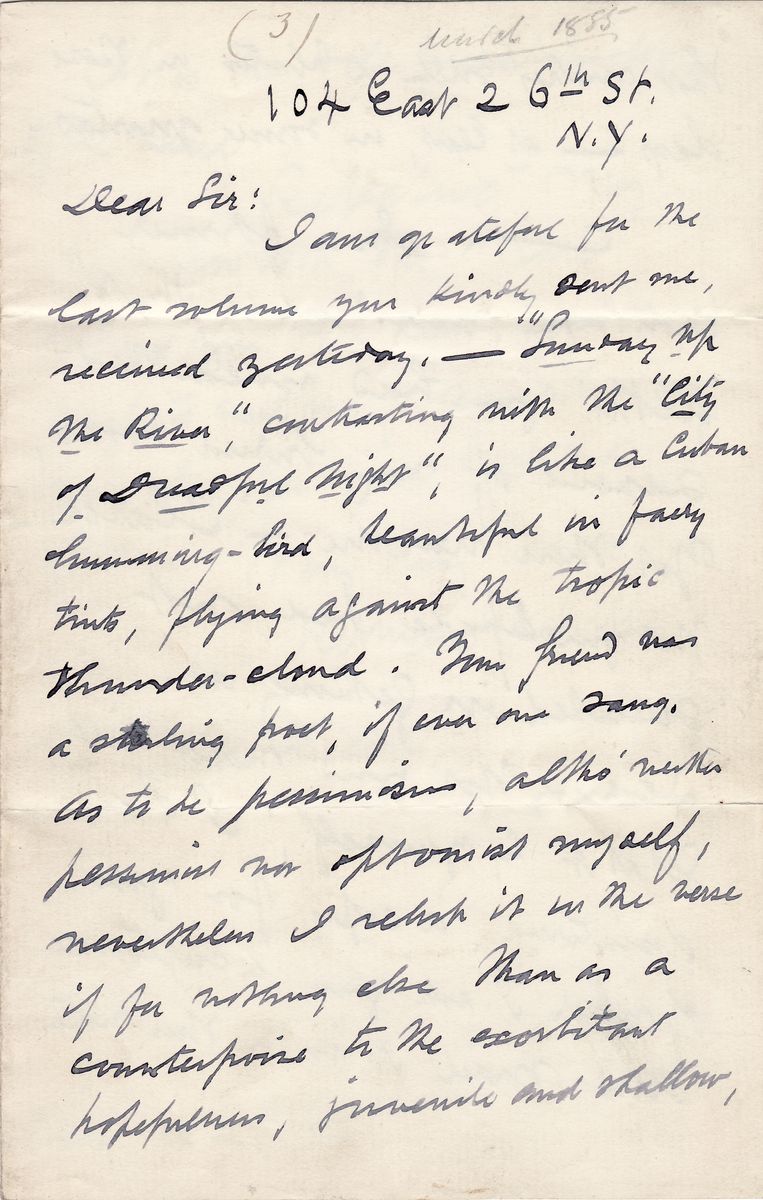 (3)
March 1885
104 East 26th St.
N.Y.
Dear Sir:
I am grateful for the
last volume you kindly sent me,
received yesterday. — "Sunday up
the River," contrasting with the "City
of Dreadful Night", is like a Cuban
humming-bird, beautiful in faery
tints, flying against the tropic
thunder-cloud. Your friend was
a sterling poet, if ever one sang.
As to the pessimism, altho' neither
pessimist nor optomist myself,
nevertheless I relish it in the verse
if for nothing else than as a
counterpoise to the exorbitant
hopefulness, juvenile and shallow,